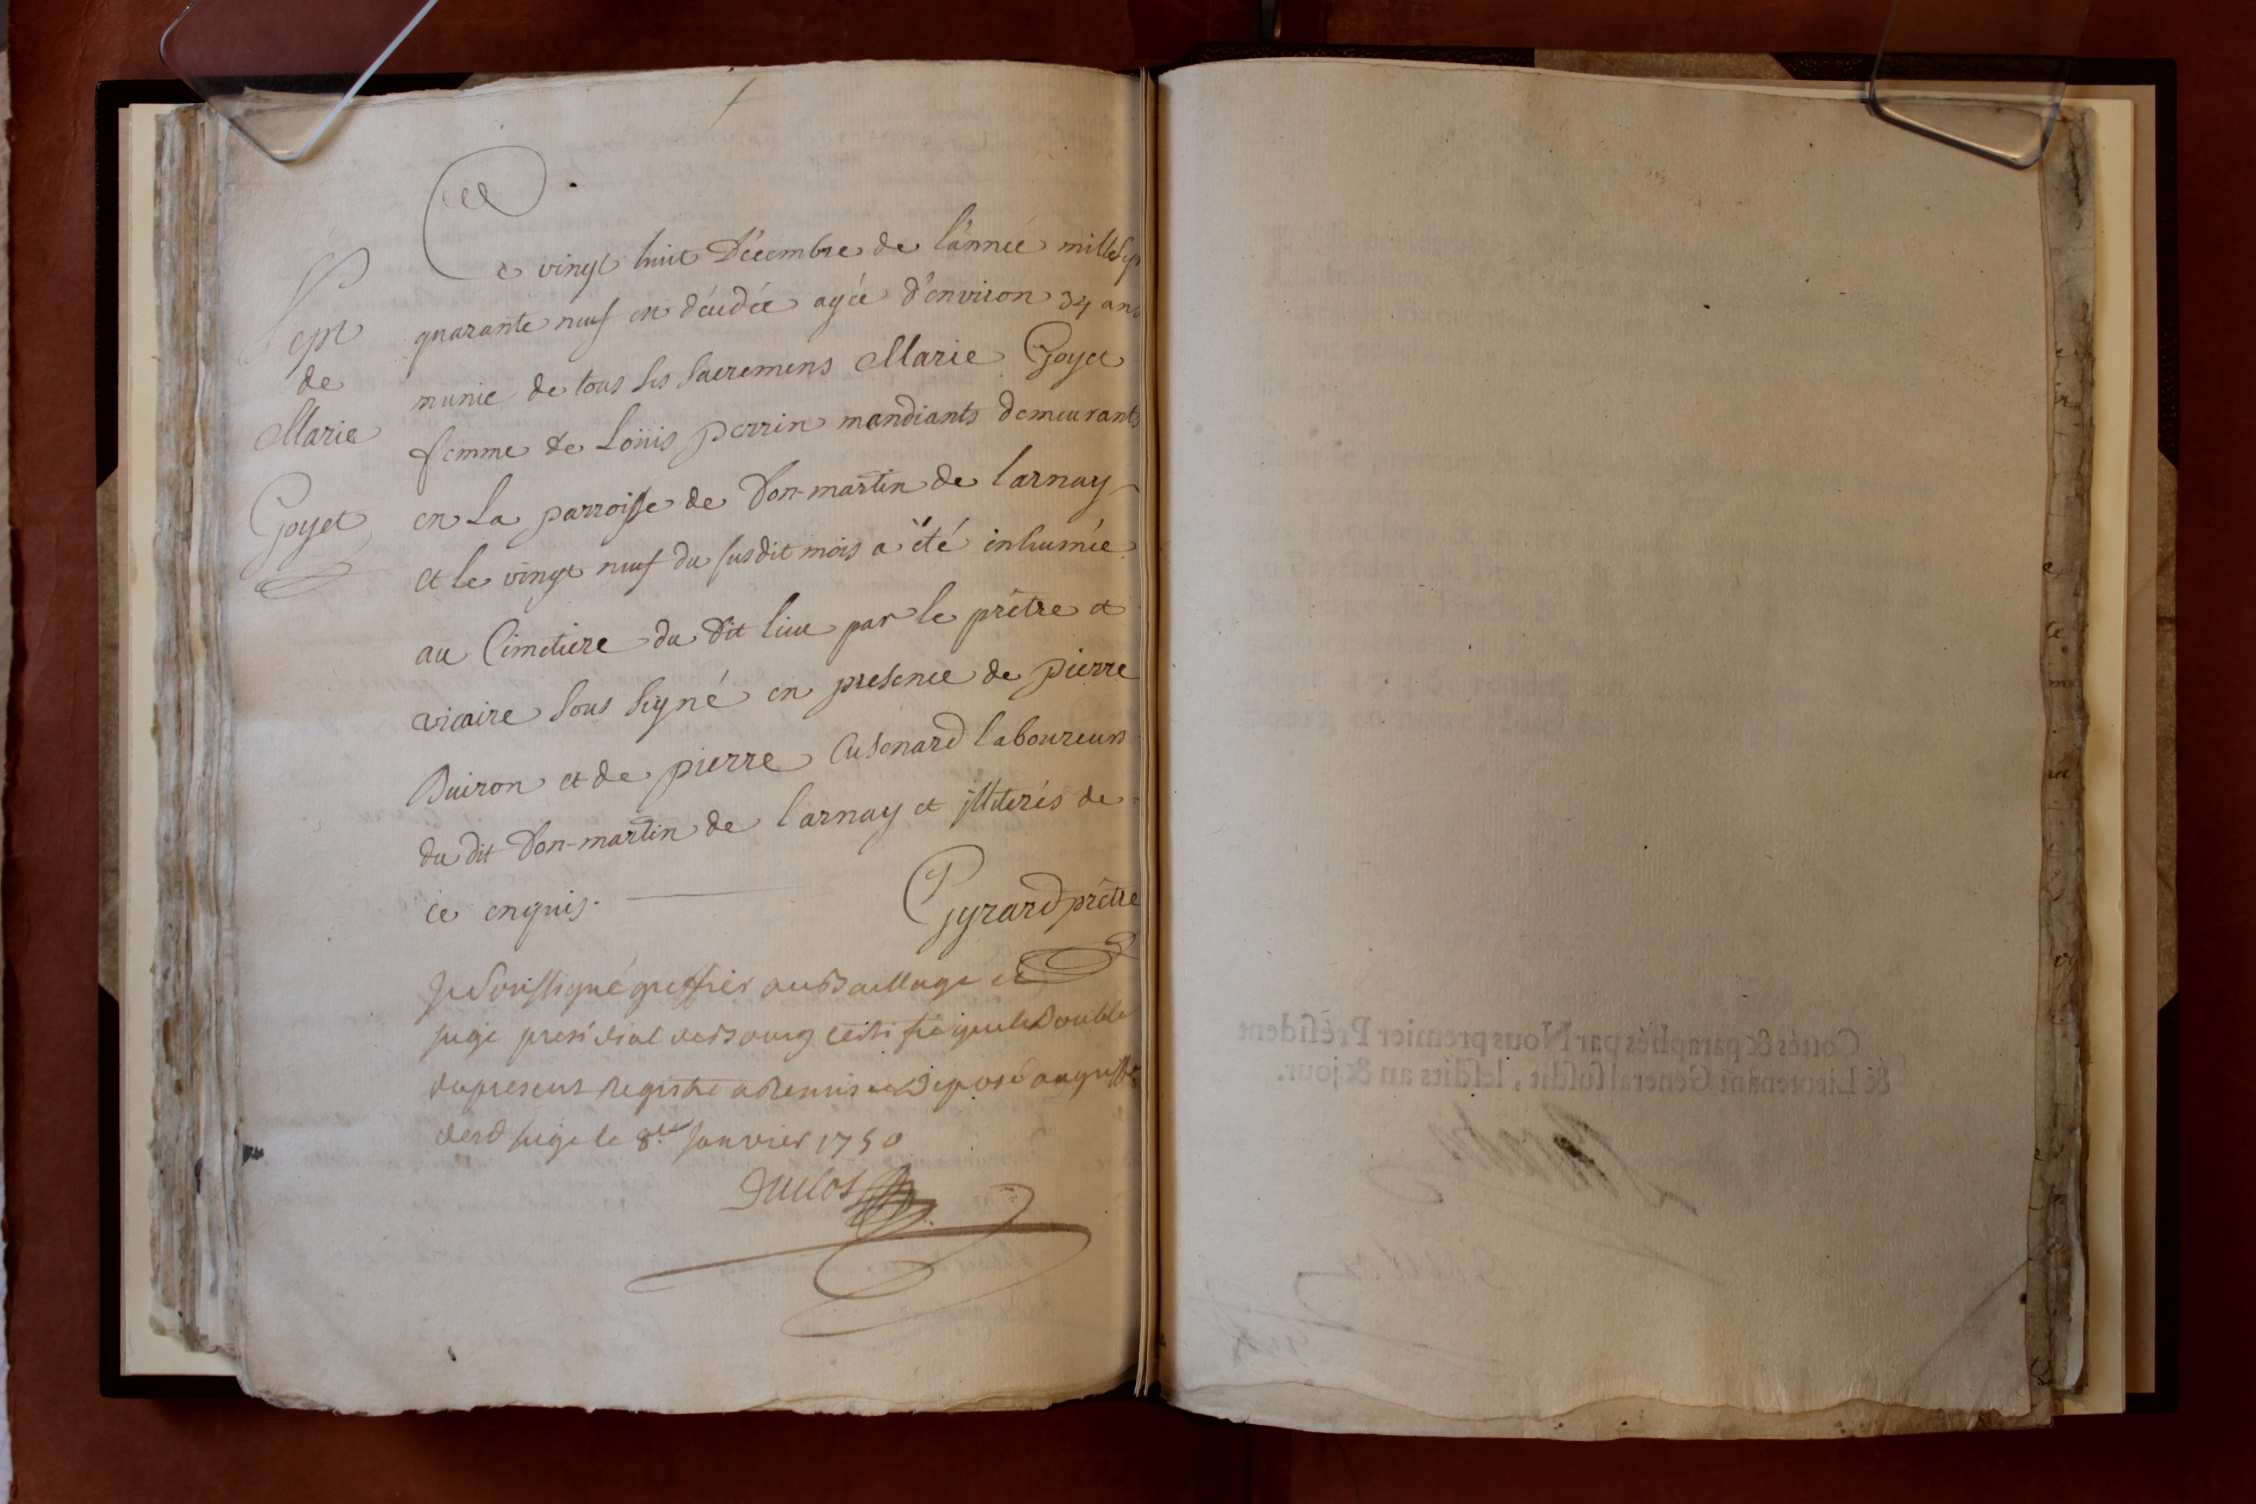 Sept
de
Marie
Goyet
Ce vingt huit Décembre de l'année mille sept
quarante neuf est décédée agée d'environ 34 ans
munie de tous les sacremens Marie Goyet
femme de Loüis perrin mandiants demeurants
en La parroisse de Don-martin de Larnay
et le vingt neuf du susdit mois a été inhumée
au Cimetiere du dit lieu par le prêtre et
vicaire sous signé en presence de pierre
Buiron et de pierre Cusenard laboureurs
du dit Don-martin de Larnay et illiterés de
ce enquis.
Gyrard prêtre
Je soussigné greffier au Baillage et
siege presidial de Bourg certifie que le Double
du present Registre a Remis et deposé au greffe
dud siege le 8e Janvier 1750
Duclos
Cottés & paraphés par Nous premier Président
& Lieutenant Général susdit, lesdits an & jour.